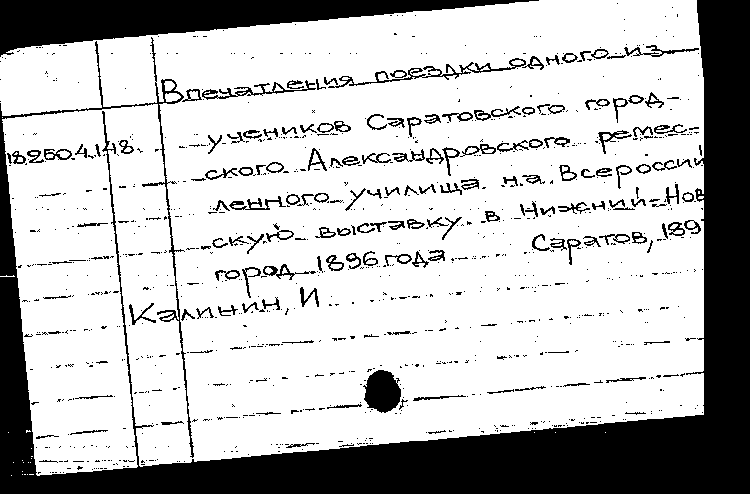 Впечатления поездки одного из
18250.4.148.
учеников Саратовского город-
ского Александровского ремес-
ленного училища на Всероссий
скую выставку в Нижний=Нов
город 1896 года Саратов, 189
Калинин, И